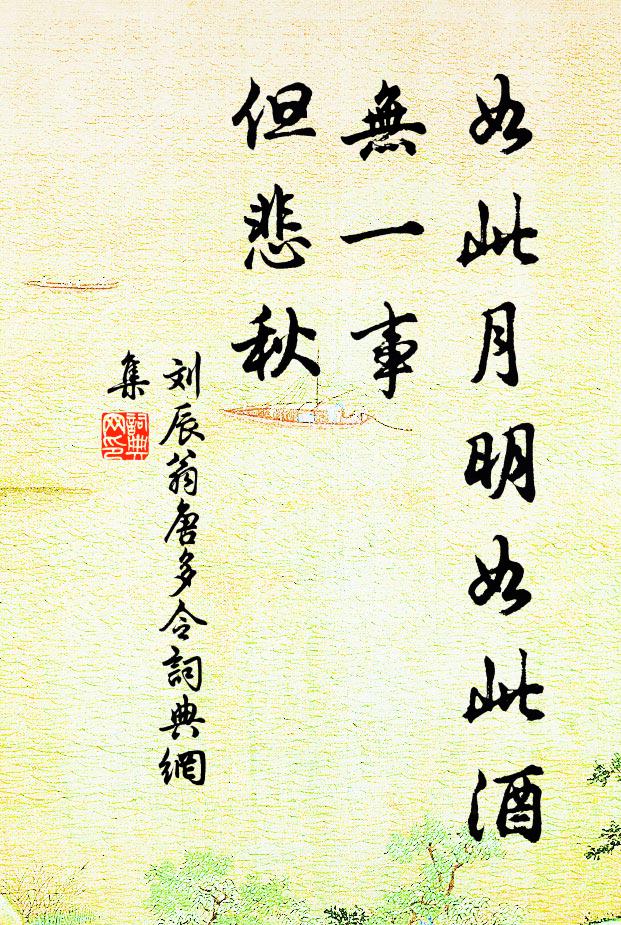 如此月明如此酒
無一事
但悲秋
刘辰翁唐多令詞典網
集
詞典网印